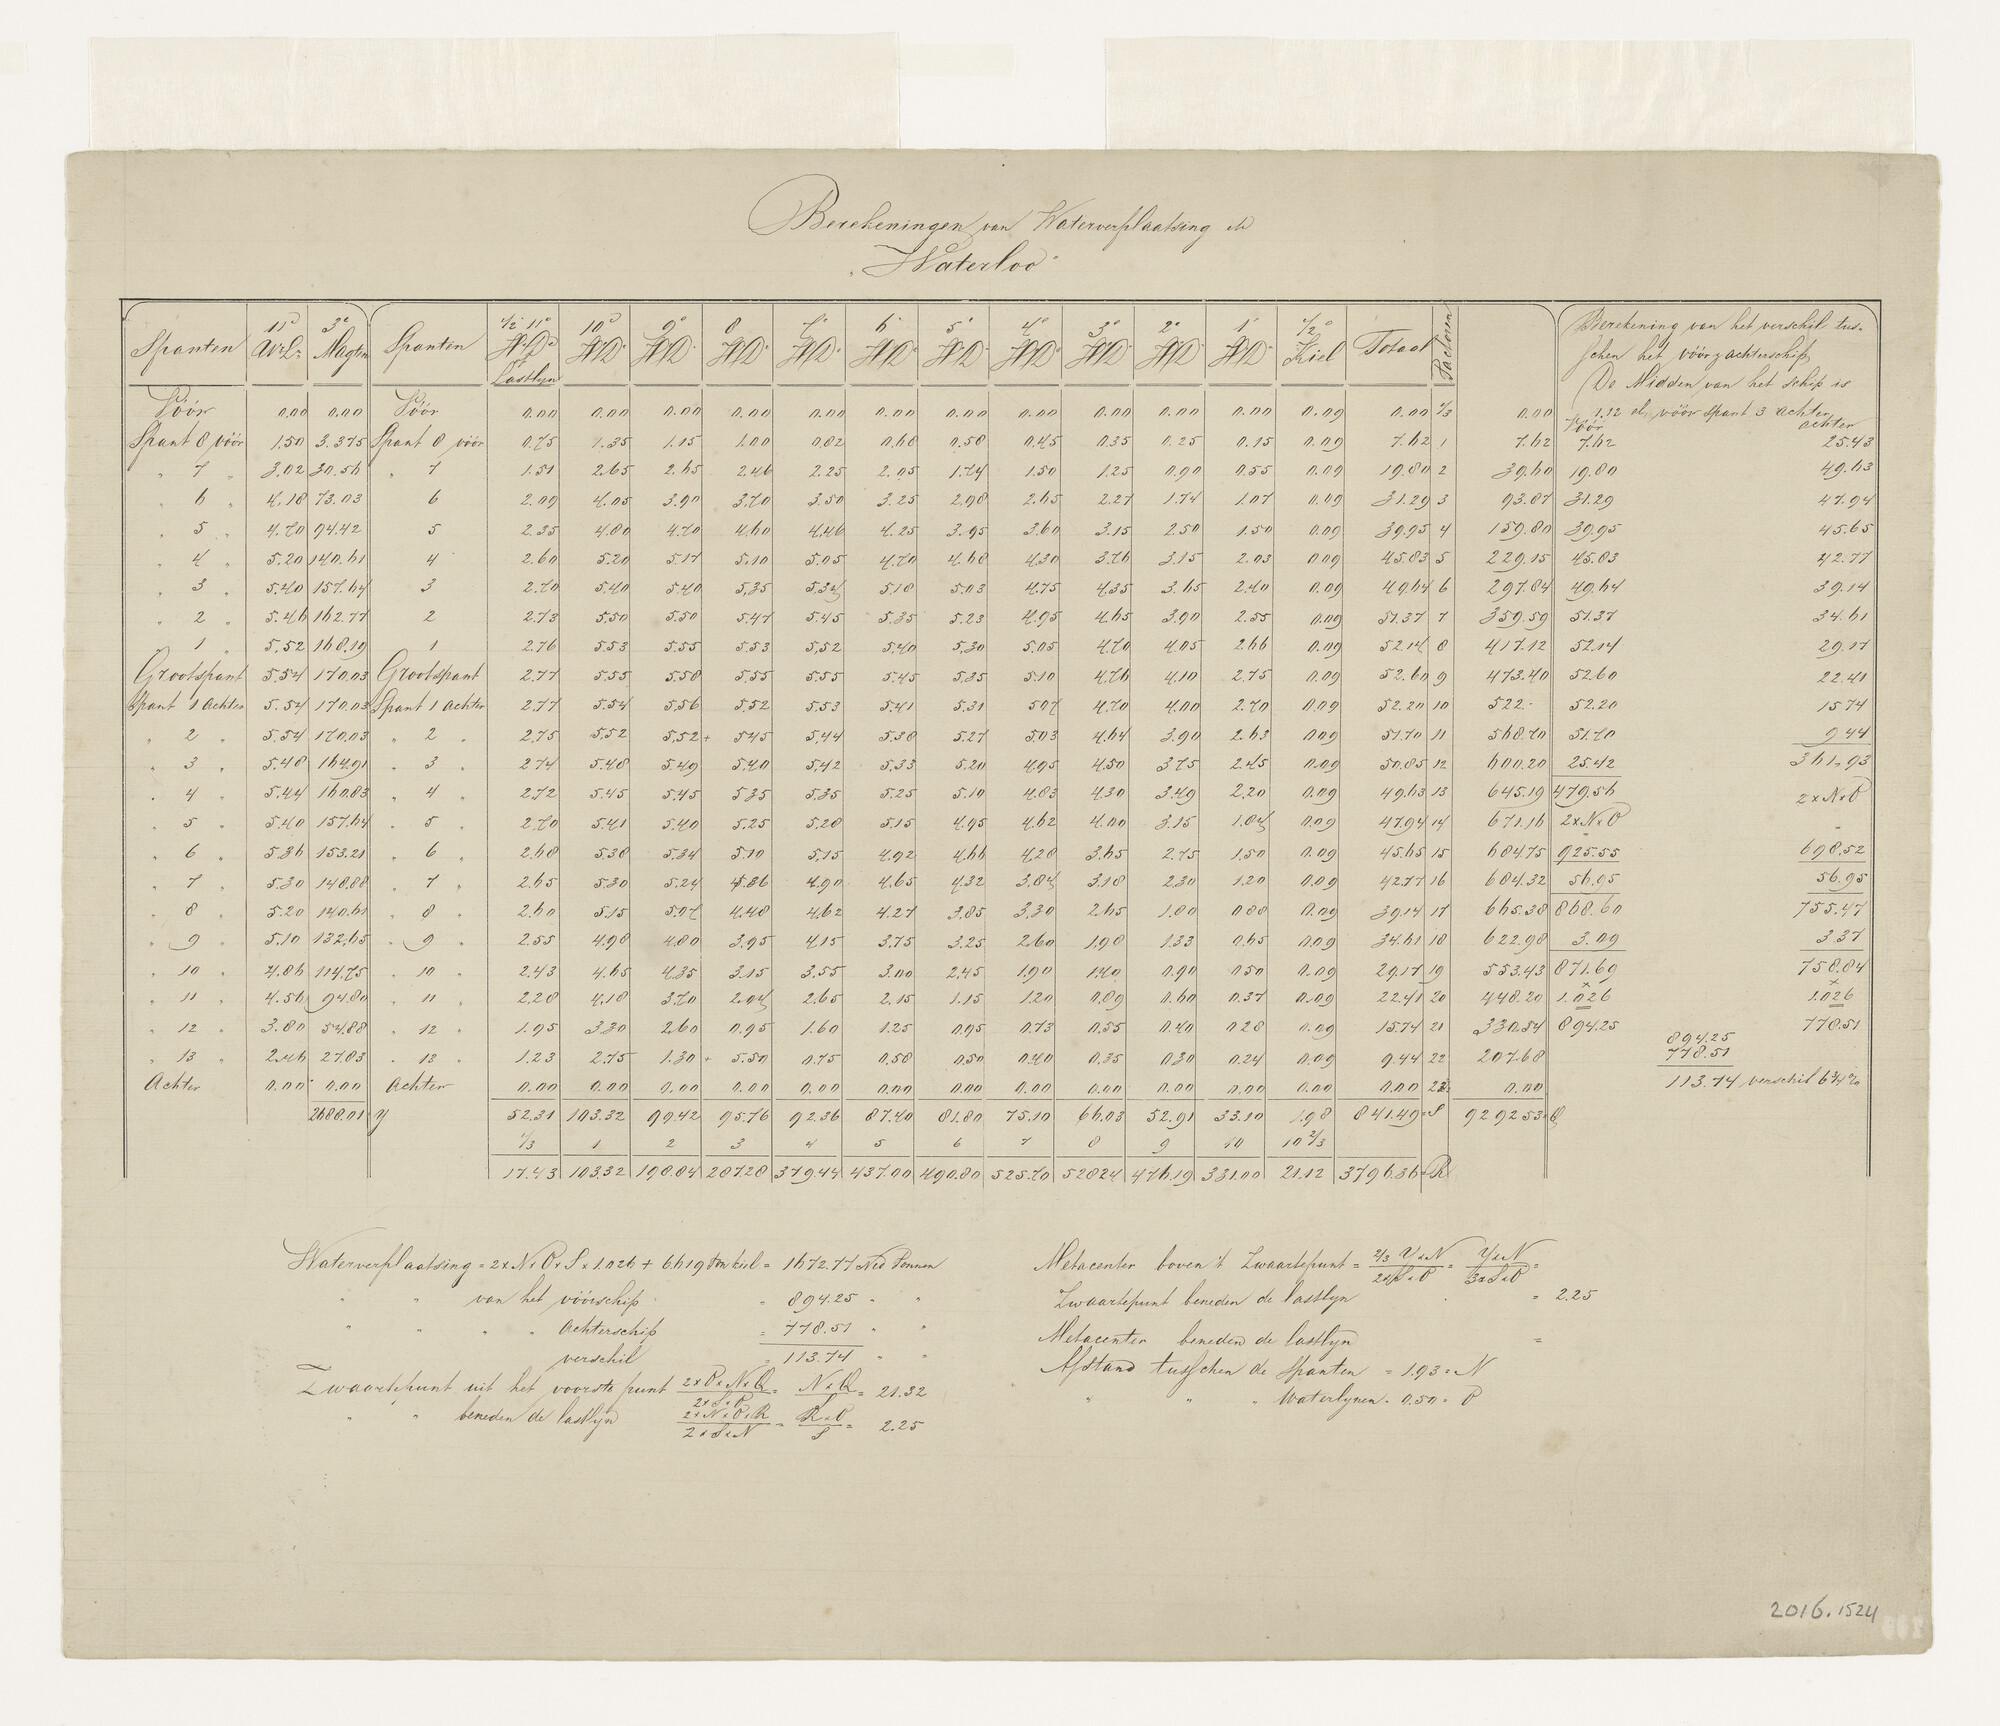 Berekeningen van Waterverplaatsing etc
"Waterloo"
Spanten 11e Wr.L. 3e Magten Spanten ½ 11e WD of Lastlyn 10e WD 9e WD 8 WD 7e WD 6e WD 5e WD 4e WD 3e WD 2e WD 1e WD ½ Kiel Totaal Factoren
Berekening van het verschil tus-
schen het vóór & achterschip
De Midden van het schip is
1.12 el vóór spant 3 achter
Vóór achter
Vóór 0.00 0.00 Vóór 0.00 0.00 0.00 0.00 0.00 0.00 0.00 0.00 0.00 0.00 0.00 0.09 0.00 ⅓ 0.00
Spant 8 vóór 1.50 3.375 Spant 8 vóór 0.75 1.35 1.15 1.00 0.82 0.68 0.58 0.45 0.35 0.25 0.15 0.09 7.62 1 7.62 7.62 25.43
" 7 " 3.02 30.56 " 7 1.51 2.65 2.65 2.46 2.25 2.05 1.74 1.50 1.25 0.90 0.55 0.09 19.80 2 39.60 19.80 49.63
" 6 " 4.18 73.03 6 2.09 4.05 3.90 3.70 3.50 3.25 2.98 2.65 2.27 1.74 1.07 0.09 31.29 3 93.87 31.29 47.94
" 5 " 4.70 94.42 5 2.35 4.80 4.70 4.60 4.46 4.25 3.95 3.60 3.15 2.50 1.50 0.09 39.95 4 159.80 39.95 45.65
" 4 " 5.20 140.61 4 2.60 5.20 5.17 5.10 5.05 4.70 4.68 4.30 3.76 3.15 2.03 0.09 45.83 5 229.15 45.83 42.77
" 3 " 5.40 157.64 3 2.70 5.40 5.40 5.35 5.34 5.18 5.03 4.75 4.35 3.65 2.40 0.09 49.64 6 297.84 49.64 39.14
" 2 " 5.46 162.77 2 2.73 5.50 5.50 5.47 5.45 5.35 5.23 4.95 4.65 3.90 2.55 0.09 51.37 7 359.59 51.37 34.61
1 " 5.52 168.19 1 2.76 5.53 5.55 5.53 5.52 5.40 5.30 5.05 4.70 4.05 2.66 0.09 52.14 8 417.12 52.14 29.17
Grootspant 5.54 170.03 Grootspant 2.77 5.55 5.58 5.55 5.55 5.45 5.35 5.10 4.76 4.10 2.75 0.09 52.60 9 473.40 52.60 22.41
Spant 1 Achter 5.54 170.03 Spant 1 achter 2.77 5.54 5.56 5.52 5.53 5.41 5.31 5.07 4.70 4.00 2.70 0.09 52.20 10 522.- 52.20 15.74
" 2 " 5.54 170.03 " 2 " 2.75 5.52 5.52 + 5.45 5.44 5.38 5.27 5.03 4.64 3.90 2.63 0.09 51.70 11 568.70 51.70 9.44
" 3 " 5.48 164.91 " 3 " 2.74 5.48 5.49 5.40 5.42 5.33 5.20 4.95 4.50 3.75 2.45 0.09 50.85 12 600.20 25.42 361.93
" 4 " 5.44 160.83 " 4 " 2.72 5.45 5.45 5.35 5.35 5.25 5.10 4.83 4.30 3.49 2.20 0.09 49.63 13 645.19 479.56 2 x N x P
" 5 " 5.40 157.64 " 5 " 2.70 5.41 5.40 5.25 5.28 5.15 4.95 4.62 4.00 3.15 1.84 0.09 47.94 14 671.16 2 x N x P
" 6 " 5.36 153.21 " 6 " 2.68 5.38 5.34 5.10 5.15 4.92 4.66 4.28 3.65 2.75 1.50 0.09 45.65 15 684.75 925.55 698.52
" 7 " 5.30 148.88 " 7 " 2.65 5.30 5.24 4.86 4.90 4.65 4.32 3.84 3.18 2.30 1.20 0.09 42.77 16 684.32 56.95 56.95
" 8 " 5.20 140.61 " 8 " 2.60 5.15 5.07 4.48 4.62 4.27 3.85 3.30 2.65 1.80 0.88 0.09 39.14 17 665.38 868.60 755.47
" 9 " 5.10 132.65 " 9 " 2.55 4.98 4.80 3.95 4.15 3.75 3.25 2.60 1.98 1.33 0.65 0.09 34.61 18 622.98 3.09 3.37
" 10 " 4.86 114.75 " 10 " 2.43 4.65 4.35 3.15 3.55 3.00 2.45 1.90 1.40 0.90 0.50 0.09 29.17 19 553.43 871.69 758.84
" 11 " 4.56 94.80 " 11 " 2.28 4.18 3.70 2.04 2.65 2.15 1.15 1.20 0.89 0.60 0.37 0.09 22.41 20 448.20 1.026 1.026
" 12 " 3.80 54.88 " 12 " 1.95 3.30 2.60 0.95 1.60 1.25 0.95 0.73 0.55 0.40 0.28 0.09 15.74 21 330.54 894.25 778.51
" 13 " 2.46 27.83 " 13 " 1.23 2.75 1.30 + 5.50 0.75 0.58 0.50 0.40 0.35 0.30 0.24 0.09 9.44 22 207.68
Achter 0.00 0.00 Achter 0.00 0.00 0.00 0.00 0.00 0.00 0.00 0.00 0.00 0.00 0.00 0.00 0.00 22⅔ 0.00
894.25
778.51
113.74 verschil 6¾ %
2688.01 = Y 52.31 103.32 99.42 95.76 92.36 87.40 81.80 75.10 66.03 52.91 33.10 1.98 841.49 = S 9292.53 = Q
⅓ 1 2 3 4 5 6 7 8 9 10 10⅔
17.43 103.32 198.84 287.28 379.44 437.00 490.80 525.70 528.24 476.19 331.00 21.12 3796.36 = R
Waterverplaatsing = 2 x N x P x S x 1.026 + 6619 ton kiel = 1672.77 Ned Tonnen
" " van het vóórschip = 894.25 " "
" " " " Achterschip = 778.51 " "
verschil = 113.74 " "
Zwaartepunt uit het voorste punt 2 x P x N x Q / 2 x S x P = N x Q / S = 21.32
" " beneden de lastlyn 2 x N x P x R / 2 x S x N = R x P / S = 2.25
Metacenter boven 't Zwaartepunt = ⅔ Y x N / 2 x S x P = Y x N / 3 x S x P =
Zwaartepunt beneden de lastlyn = 2.25
Metacenter beneden de lastlyn =
Afstand tusschen de Spanten = 1.93 = N
" " " Waterlynen = 0.50 = P
2016.1524